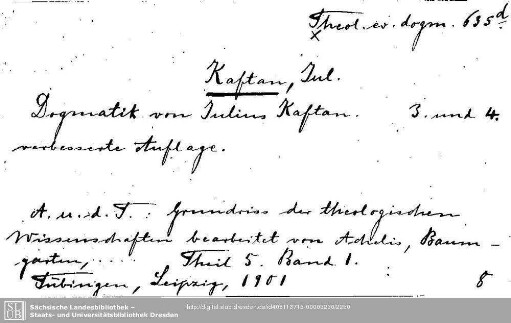 Theol. ev. dogm. 635d
Kaftan, Jul.
Dogmatik von Julius Kaftan. 3. und 4.
verbesserte Auflage.
A. u. d. T.: Grundriss der theologischen
Wissenschaften bearbeitet von Achelis, Baum-
garten, ..... Theil 5. Band 1.
Tübingen, Leipzig, 1901 8
Sächsische Landesbibliothek –
Staats- und Universitätsbibliothek Dresden